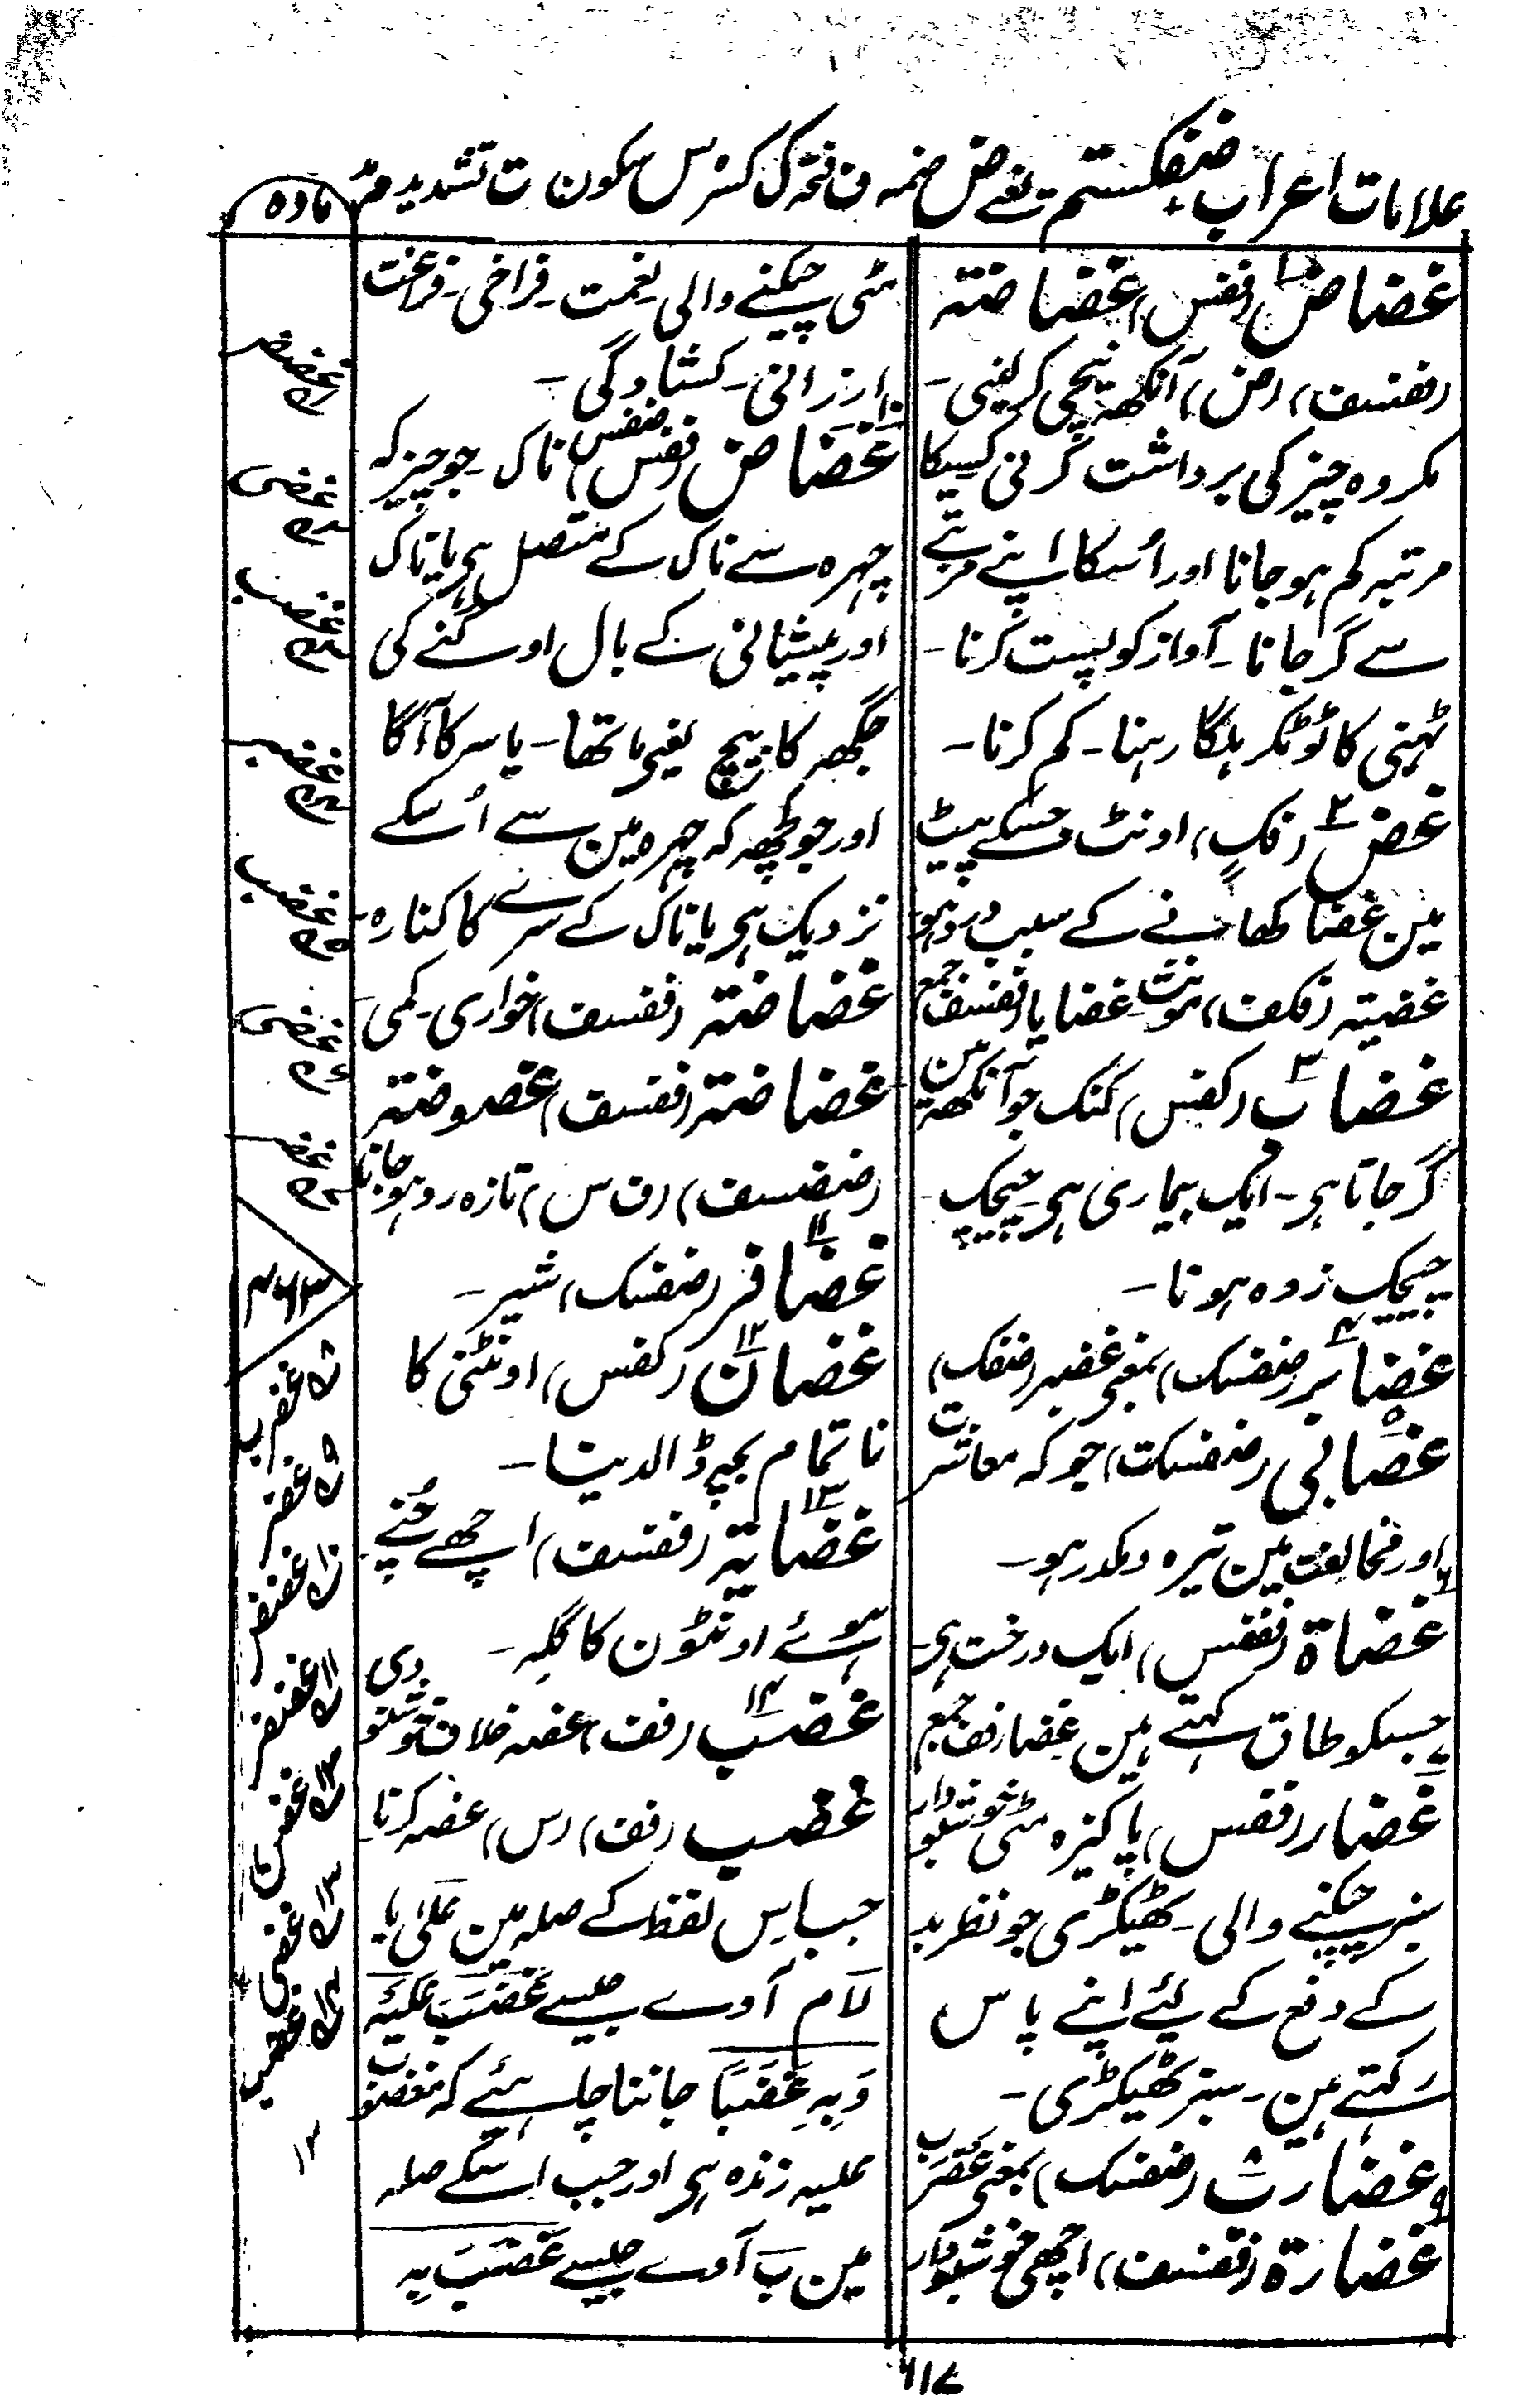 علامات اعراب ضفکستم یعنے ض ضمہ ف فتحہ ک کسرہ س سکون ت تشدید م مد
مادہ
غضاض (فنس) غضاضتہ
(فنسف) (ض) آنکھہ نیچی کر لینی ـ
مکروہ چیز کی برداشت کرنی کسیکا
مرتبہ کم ہو جانا اور اُسکا اپنے مرتبے
سے گر جانا ـ آواز کو پست کرنا ـ
ٹہنی کا ٹوٹکر ہلگا رہنا ـ کم کرنا ـ
غضٍ ۲ (فکٍ) اونٹ جسکے پیٹ
مین غضا کھانے کے سبب درد ہو
غضیتہ (فکف) مونث غضایا (فنسف) جمع
غضاب ۳ (کفس) کنک جو آنکھہ مین
گر جاتا ہی ـ ایک بیماری ہی ـ چیچک ـ
چیچک زدہ ہونا ـ
غضابر ۴ (ضفسک) بمعنی غضبر (ضفک)
غضابی ۵ (ضفسکت) جو کہ معاشرت
اور مخالفت مین تیرہ و مکدر ہو ـ
غضاۃ ۶ (ففس) ایک درخت ہی
جسکو طاق کہتے ہین غضا (فف) جمع
غضار ۷ (ففس) پاکیزہ مٹی خوشبودار
سبز چپکنے والی ـ ٹھیکڑی جو نظر بد
کے دفع کے لئے اپنے پاس
رکہتے ہین ـ سبز ٹھیکڑی ـ
غضارب ۸ (ضفسک) بمعنی غضرب
غضارۃ ۹ (ففسف) اچھی خوشبودار
مٹی چپکنے والی نعمت ـ فراخی ـ فراغت
ارزانی ـ کشادگی ـ
غضاض ۱۰ (ففس ضفس) ناک ـ جو چیز کہ
چہرہ سے ناک کے متصل ہی یا ناک
اور پیشانی کے بال اوگنے کی
جگھہ کا بیچ یعنی ماتھا ـ یا سر کا آگا
اور جو کچھہ کہ چہرہ مین سے اُسکے
نزدیک ہی یا ناک کے سرے کا کنارہ ـ
غضاضتہ (ففسف) خواری ـ کمی ـ
غضاضتہ (ففسف) غضوضتہ
(ضضسف) (ف س) تازہ رو ہو جانا
غضافر ۱۱ (ضفسک) شیر ـ
غضان ۱۲ (کفس) اونٹنی کا
ناتمام بچہ ڈالدینا ـ
غضایۃ ۱۳ (ففسف) اچھے چُنے
ہوئے اونٹون کا گلہ ـ
غضب ۱۴ (فف) غصہ خلاف خوشنودی
غضب (فف) (س) غصہ کرنا ـ
جب اِس لفظ کے صلہ مین عَلیٰ یا
لاَم آوے جیسے غَضَبَ عَلَیْہِ
وَبِہِ غَضَبًا جاننا چاہئیے کہ مغضوب
علیہ زندہ ہی اور جب اسکے صلہ
مین بَ آوے جیسے غَضَبَ بِہ
غضض
غضی
غضب
غضب
غضب
غضی
غضر
۷۶۳
۸ غضرب
۹ غضر
۱۰ غضض
۱۱ غضفر
۱۲ غضن
۱۳ غضی
۱۴ غضب
۱۲
۶۱۷